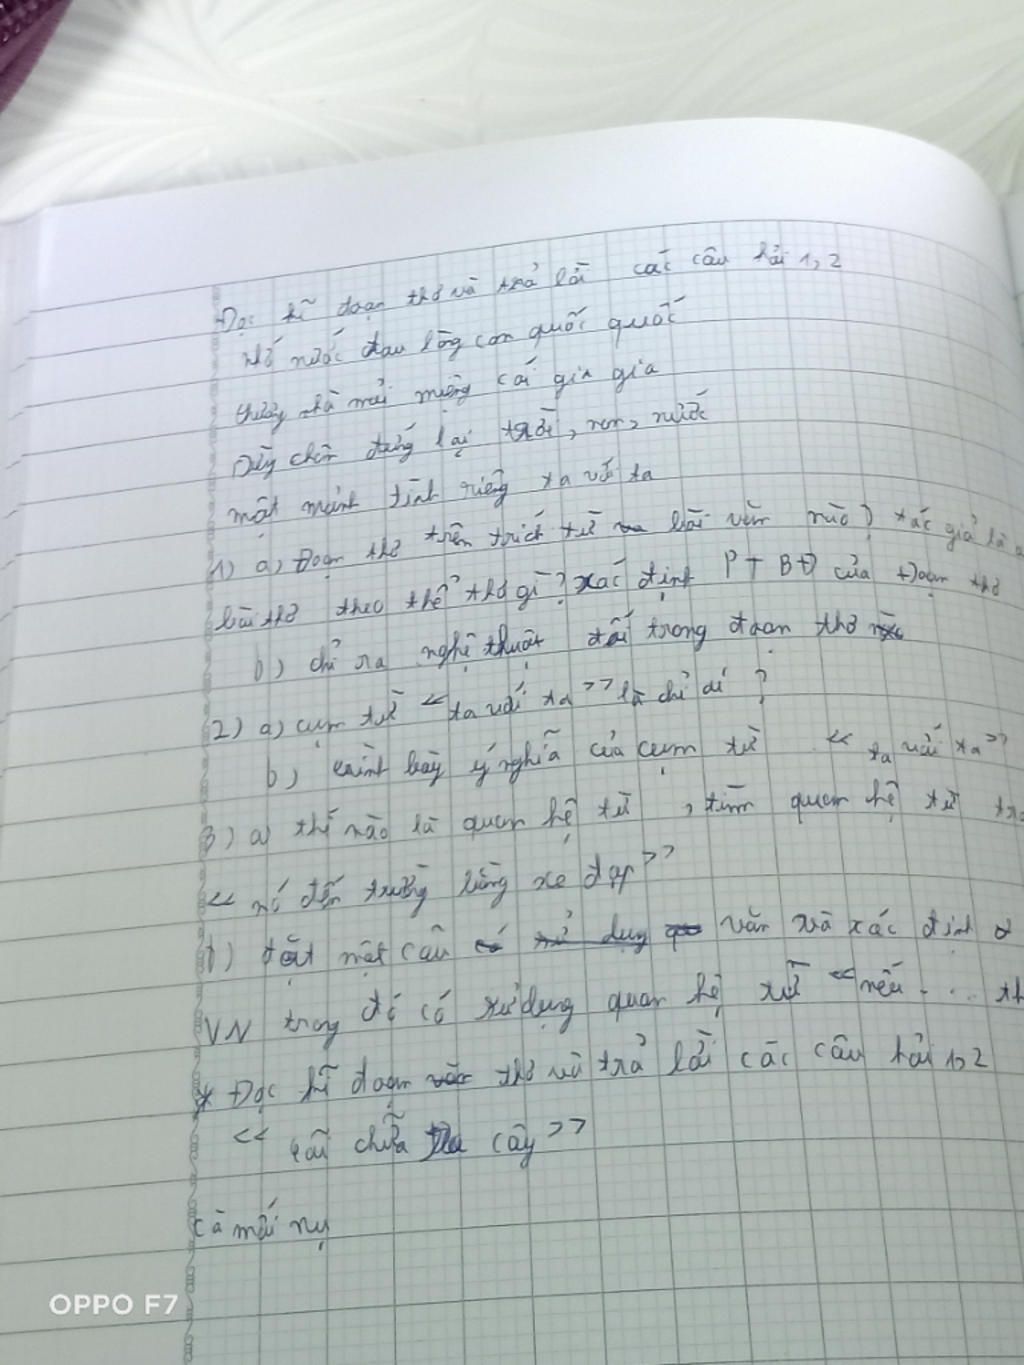 Đọc kĩ đoạn thơ và trả lời các câu hỏi 1, 2
Nhớ nước đau lòng con quốc quốc
thương nhà mỏi miệng cái gia gia
Dừng chân đứng lại trời, non, nước
một mảnh tình riêng ta với ta
1) a) Đoạn thơ trên trích từ bài văn nào? tác giả là a
bài thơ theo thể thơ gì? xác định PTBĐ của Đoạn thơ
b) chỉ ra nghệ thuật đối trong đoạn thơ
2) a) cụm từ << ta với ta >> là chỉ ai?
b) trình bày ý nghĩa của cụm từ << ta với ta >>
3) a) thế nào là quan hệ từ, tìm quan hệ từ tro
<< nó đến trường bằng xe đạp >>
b) đặt một câu văn và xác định
VN trong đó có sử dụng quan hệ từ << nếu ... th
* Đọc kĩ đoạn thơ và trả lời các câu hỏi 1, 2
<< cải chửa ra cây >>
cà mới nụ
OPPO F7